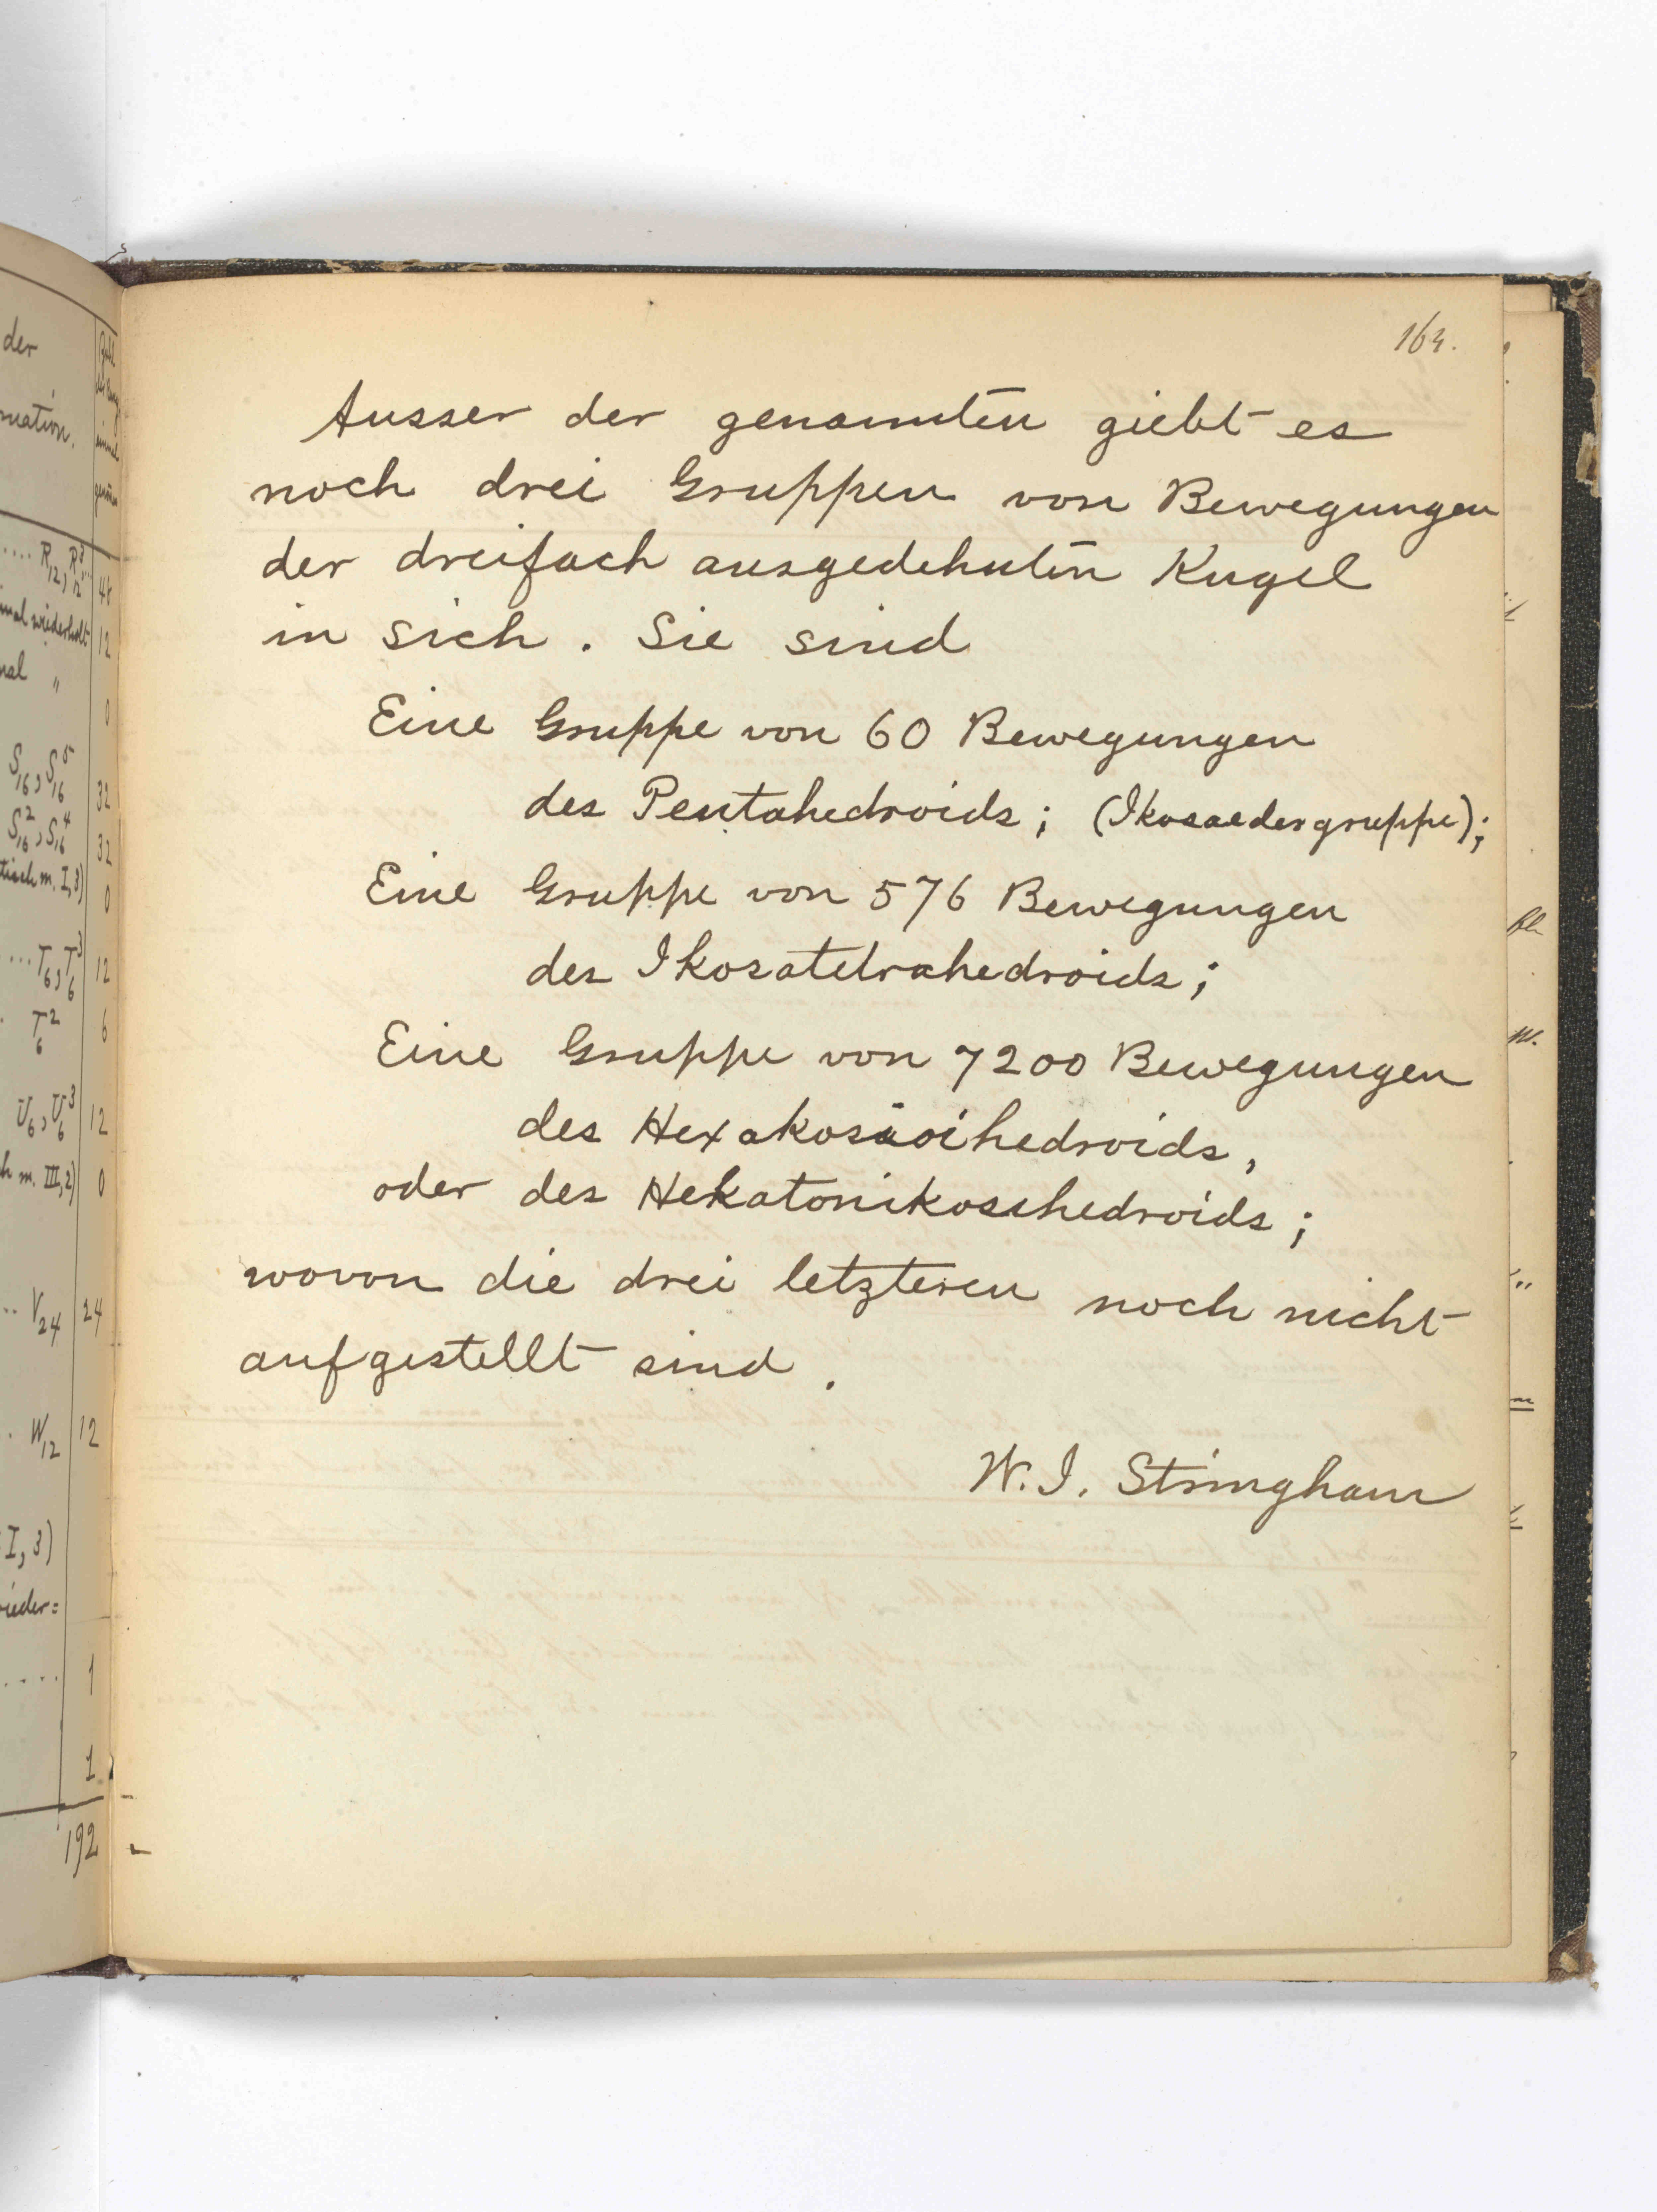 der
mation.
.... R12, R12^3...
48
mal wiederholt
12
mal "
0
S16, S16^5
32
S16^2, S16^4
32
tisch m. I,3)
0
... T6, T6^3
12
. T6^2
6
U6, U6^3
12
h m. III,2)
0
.. V24
24
. W12
12
I, 3)
ieder=
....
1
1
192
163.
Ausser der genannten giebt es
noch drei Gruppen von Bewegungen
der dreifach ausgedehnten Kugel
in sich. Sie sind
Eine Gruppe von 60 Bewegungen
des Pentahedroids; (Ikosaedergruppe);
Eine Gruppe von 576 Bewegungen
des Ikosatetrahedroids;
Eine Gruppe von 7200 Bewegungen
des Hexakosioihedroids,
oder des Hekatonikosihedroids;
wovon die drei letzteren noch nicht
aufgestellt sind.
W. I. Stringham